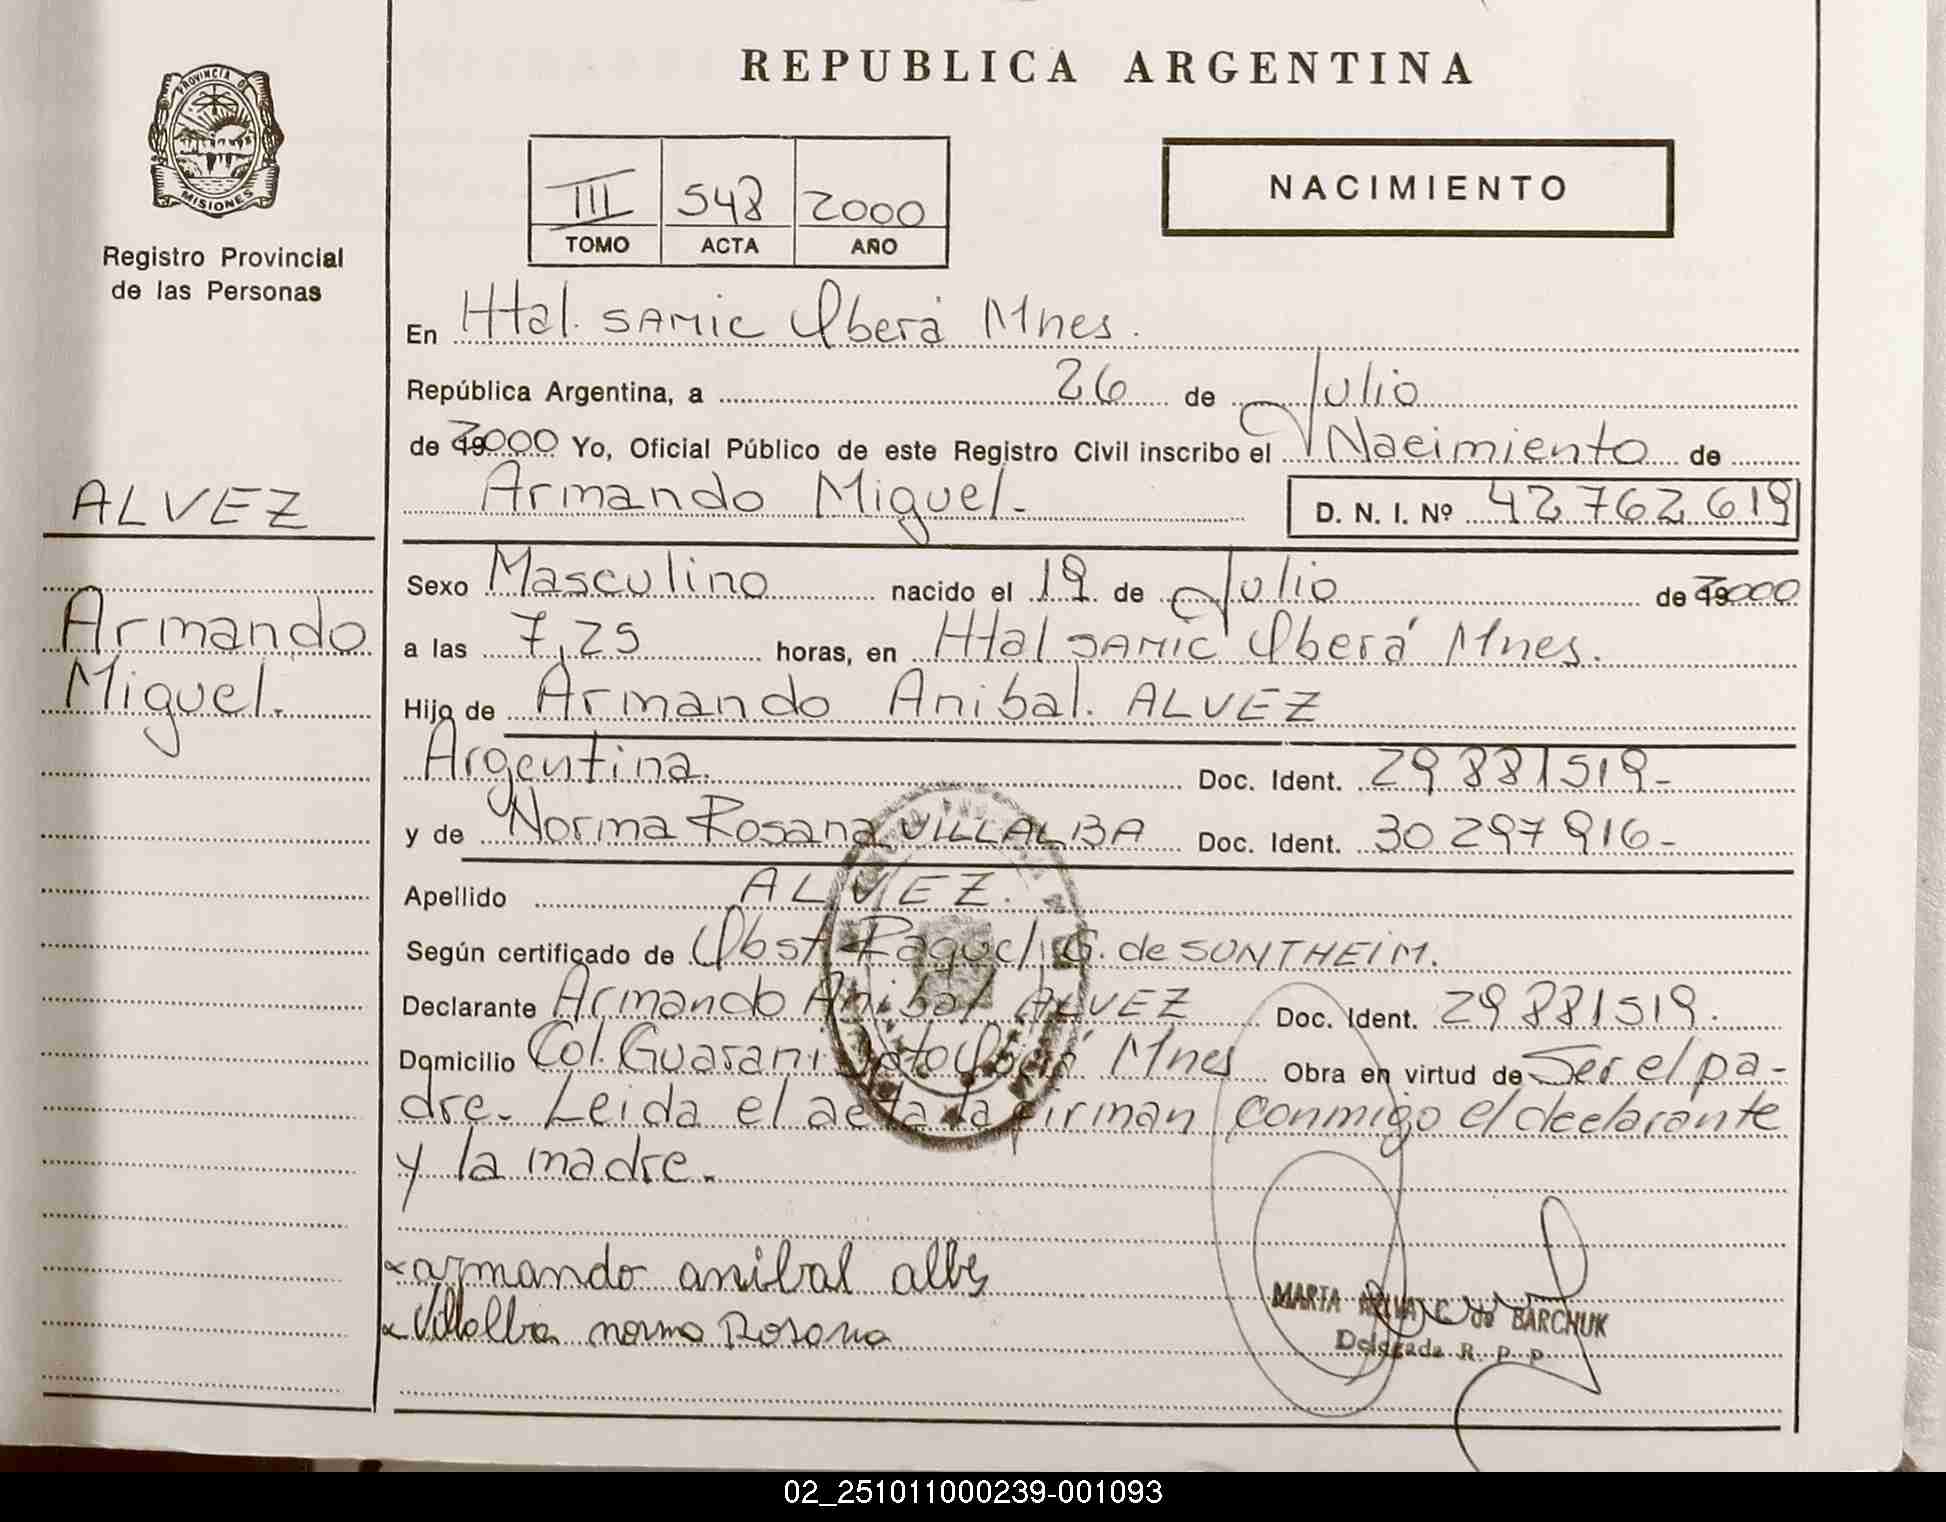 REPUBLICA ARGENTINA
PROVINCIA DE
MISIONES
Registro Provincial
de las Personas
III 548 2000
TOMO ACTA AÑO
NACIMIENTO
En Htal. SAMIC Oberá Mnes.
República Argentina, a 26 de Julio
de 2000 Yo, Oficial Público de este Registro Civil inscribo el Nacimiento de
Armando Miguel.- D. N. I. Nº 42 762 619
ALVEZ
Armando
Miguel.
Sexo Masculino nacido el 19 de Julio de 2000
a las 7,25 horas, en Htal SAMIC Oberá Mnes.
Hijo de Armando Anibal. ALVEZ
Argentina. Doc. Ident. 29 881 519-
y de Norma Rosana VILLALBA Doc. Ident. 30 297 916-
Apellido ALVEZ.
Según certificado de Obst Raquel G. de SONTHEIM.
Declarante Armando Anibal ALVEZ Doc. Ident. 29 881 519.
Domicilio Col. Guarani Dpto Oberá Mnes Obra en virtud de Ser el pa-
dre- Leida el acta la firman conmigo el declarante
y la madre.-
armando anibal albes
Villalba norma Rosana
MARTA DE BARCHUK
Delegada R. P. P.
02_251011000239-001093